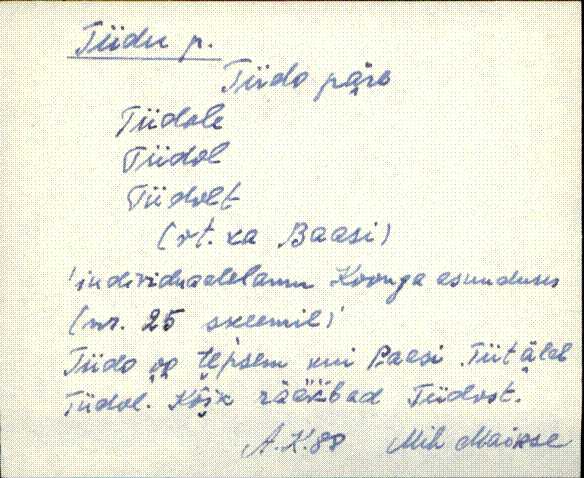 Tiidu p.
Tiido päro
Tiidole
Tiidol
Tiidolt
(vt. ka Baasi)
'individuaalelamu Koonga asunduses
(nr. 25 skeemil)'
Tiido oo tepsem kui Paasi. Tiit äleb
Tiidol. Kõik rääkbad Tiidost.
A.K. 88 Mih